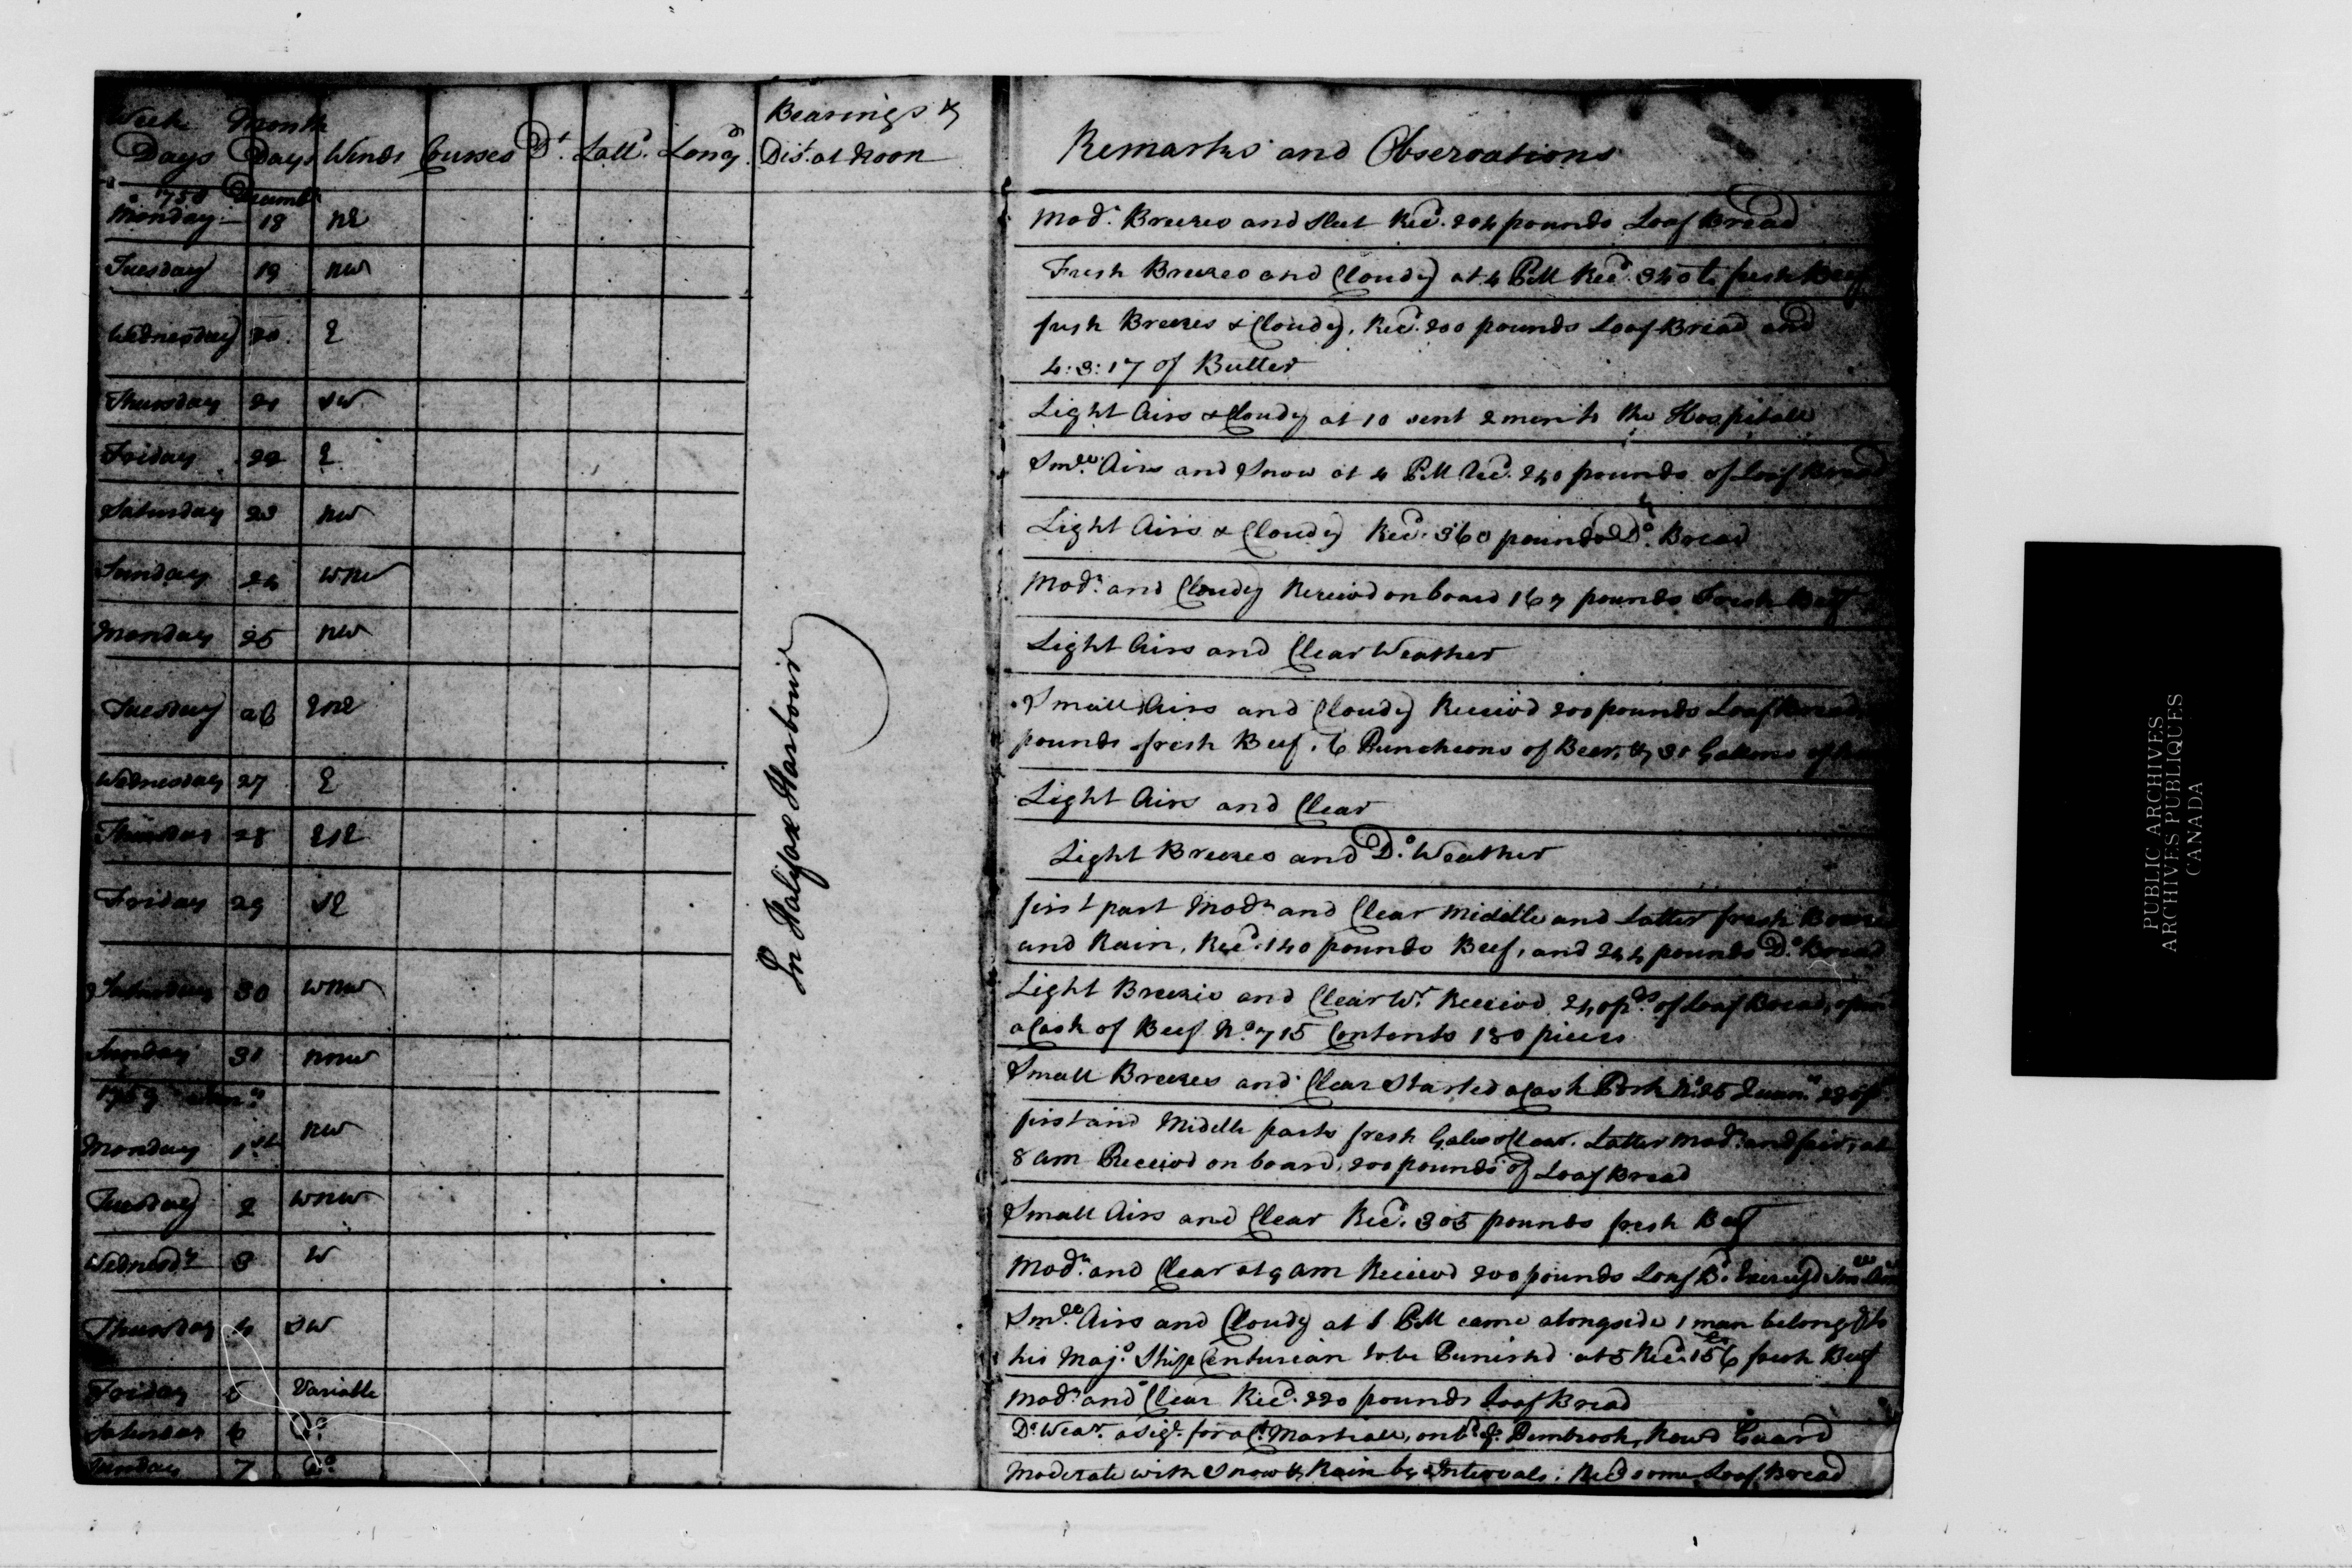 Week Month Bearings &
Days Days Winds Courses Dt. Lattd. Longd. Dist. at Noon Remarks and Observations
1758 Decembr
Monday 18 NE Modr. Breezes and Sleet Recd. 204 pounds Loaf Bread
Tuesday 19 NW Fresh Breezes and Cloudy at 4 PM Recd. 340 lb fresh Beef
Wednesday 20 E fresh Breezes & Cloudy, Recd. 200 pounds Loaf Bread and
4:3:17 of Butter
Thursday 21 SW Light Airs & Cloudy at 10 sent 2 men to the Hospitall
Friday 22 E Smll. Airs and Snow at 4 PM Recd. 240 pounds of Loaf Bread
Saturday 23 NW Light Airs & Cloudy Recd. 360 pounds Do. Bread
Sunday 24 WNW Modr. and Cloudy Receivd on board 167 pounds Fresh Beef
Monday 25 NW Light Airs and Clear Weather
Tuesday 26 ENE Small Airs and Cloudy Receivd 200 pounds Loaf Bread
pounds fresh Beef, 6 Puncheons of Beer, & 31 Gallons of
Wednesday 27 E Light Airs and Clear
Thursday 28 ESE Light Breezes and Do. Weather
Friday 29 SE first part Modr. and Clear Middle and Latter fresh Breezes
and Rain, Recd. 140 pounds Beef, and 244 pounds Do. Bread
Saturday 30 WNW Light Breezes and Clear Wr. Receivd 240 pds. of Loaf Bread,
a Cask of Beef No. 715 Contents 180 pieces
Sunday 31 NNW Small Breezes and Clear Started a Cask Pork No. 25
1759 Jany.
Monday 1st NW first and Middle parts fresh Gales & Clear. Latter Modr. and fair, at
8 am Receivd on board, 200 pounds of Loaf Bread
Tuesday 2 WNW Small Airs and Clear Recd. 305 pounds fresh Beef
Wednesdy 3 W Modr. and Clear at 9 am Receivd 200 pounds Loaf Bd. Exercisd Smll Arms
Thursday 4 SW Smll. Airs and Cloudy at 1 PM came alongside 1 man belongg to
his Majs. Ship Centurian to be Punishd at 5 Recd. 156 lb fresh Beef
Friday 5 Variable Modr. and Clear Recd. 220 pounds Loaf Bread
Saturday 6 Do. Do. Wear. a Sigl. for a Ct. Martiall, on bd. ye. Pembrook, Rowd Guard
Sunday 7 Do. Moderate with Snow & Rain by Intervals; Recd some Loaf Bread
In Halifax Harbour
PUBLIC ARCHIVES
ARCHIVES PUBLIQUES
CANADA